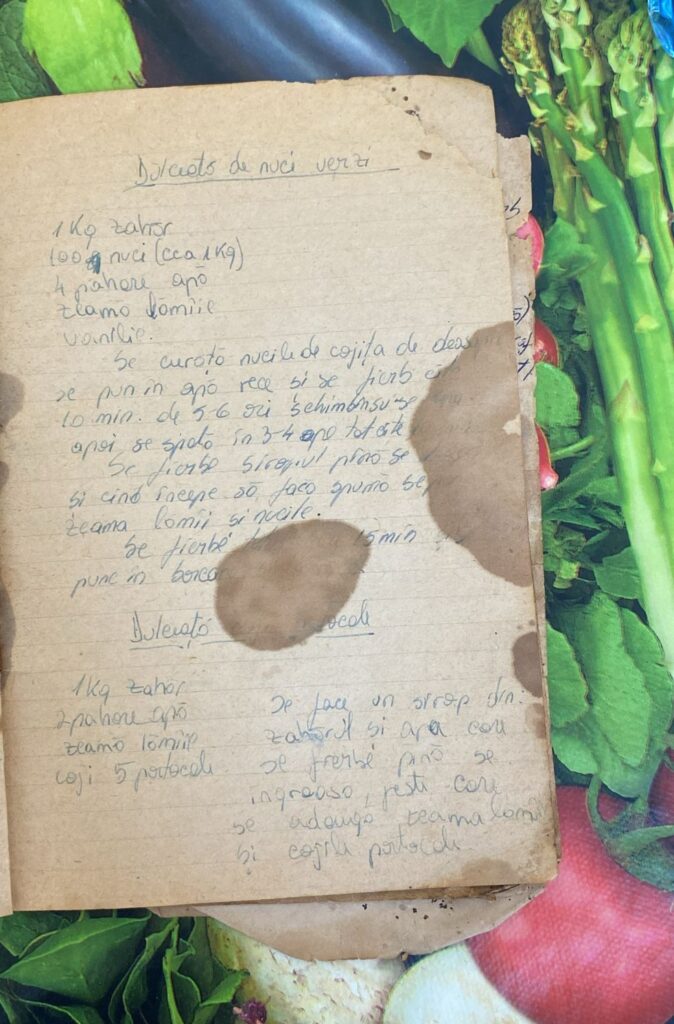 Dulceață de nuci verzi
1 Kg zahăr
100 nuci (cca 1 Kg)
4 pahare apă
zeamă lămîie
vanilie.
Se curăță nucile de cojița de
se pun în apă rece și se fierb
10 min. de 5-6 ori schimbînsu-se
apoi se spală în 3-4 ape tot cîte
Se fierbe siropul pînă se
și cînd începe să facă spumă se
zeama lămîi și nucile.
Se fierbe 15 min
pune în
Dulceață
1 Kg zahăr
2 pahare apă
zeamă lămîie
coji 5 portocale
Se face un sirop din
zahărul și apa care
se fierbe pînă se
îngroașă, peste care
se adaugă zeama
și cojile portocale.